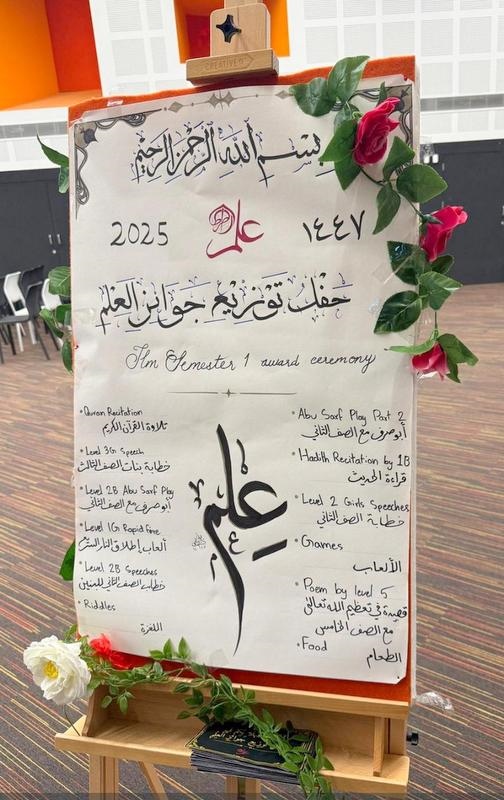 CREATIVE
بسم الله الرحمن الرحيم
2025 علم ١٤٤٧
حفل توزيع جوائز العلم
Ilm Semester 1 award ceremony
• Quran Recitation
تلاوة القرآن الكريم
• Level 3G Speech
خطابة بنات الصف الثالث
• Level 2B Abu Sarf Play
أبو صرف مع الصف الثاني
• Level 1G Rapid fire
• Level 2B Speeches
خطاب الصف الثاني للبنين
• Riddles
اللغزة
علم
• Abu Sarf Play Part 2
أبو صرف مع الصف الثاني
• Hadith Recitation by 1B
قراءة الحديث
• Level 2 Girls Speeches
خطابة الصف الثاني
• Games
الألعاب
• Poem by level 5
قصيدة في تعظيم الله تعالى
مع الصف الخامس
• Food
الطعام